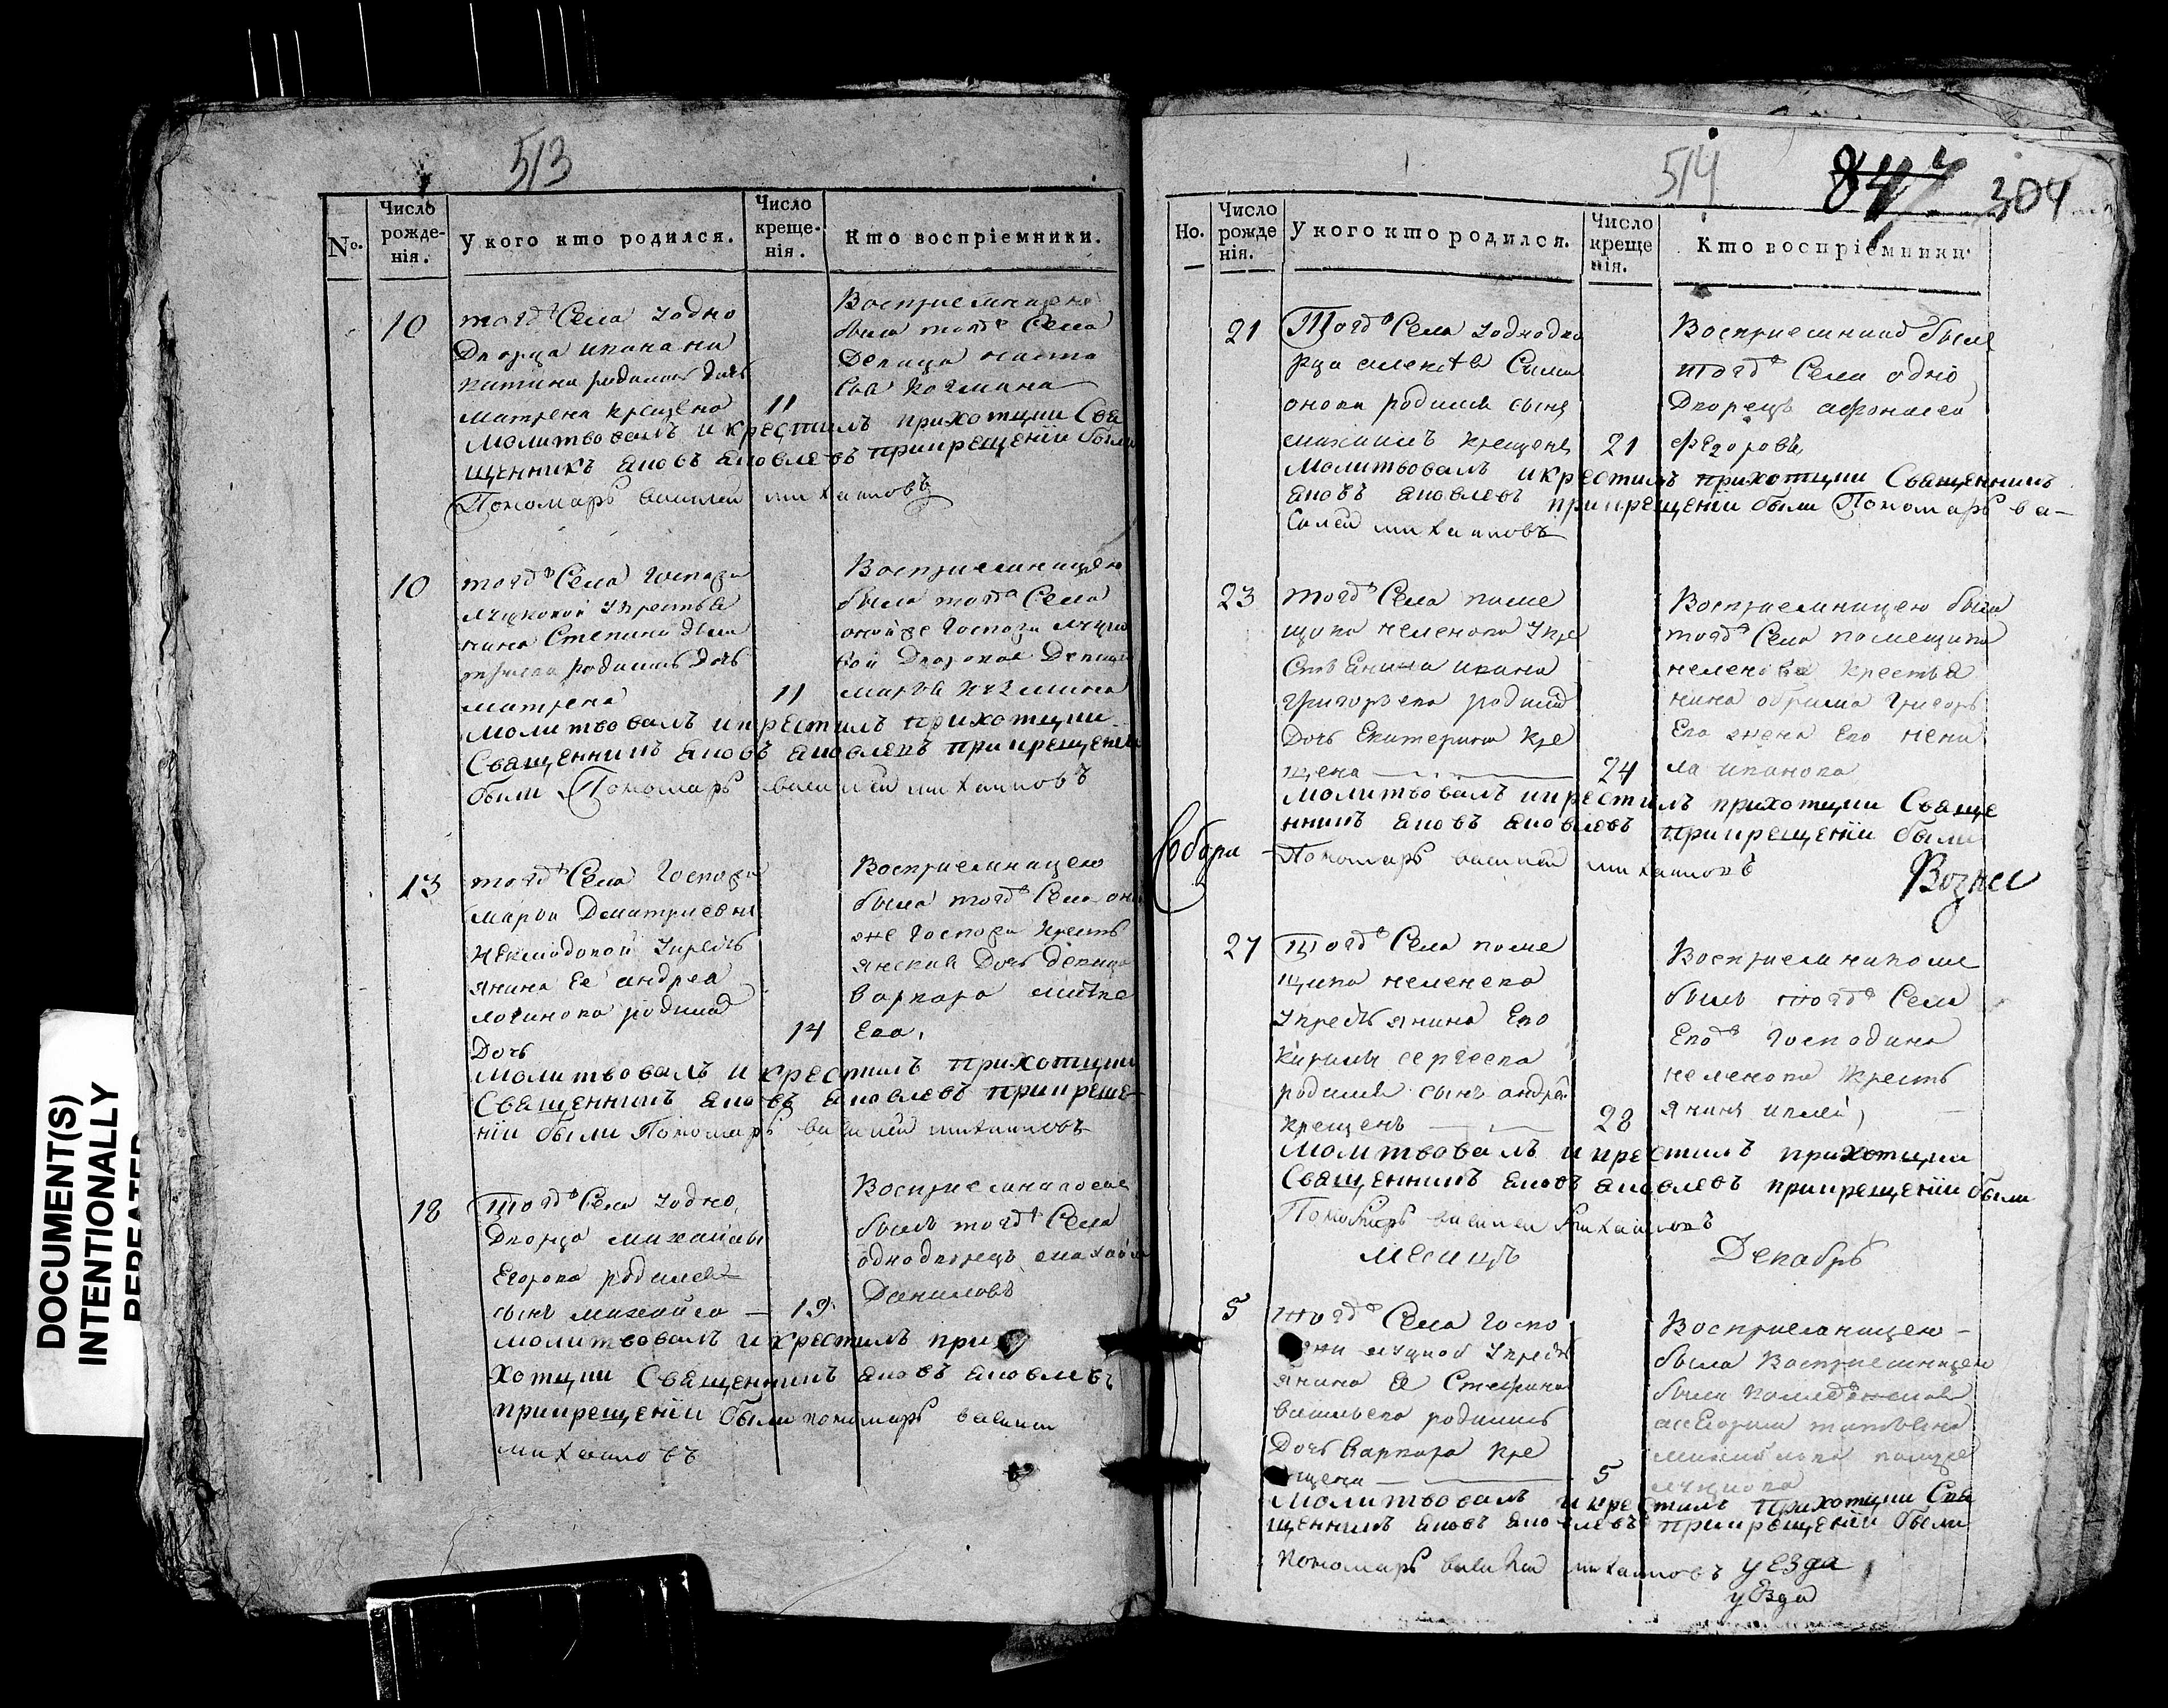 DOCUMENT(S)
INTENTIONALLY
REPEATED
513
№.
Число
рожде-
нія.
У кого кто родился.
Число
креще-
нія.
Кто воспріемники.
10
тогѡ Села Уодно
Дворца ивана
родилась дочь
матрена крещена
11
Восприемницею
была тогѡ Села
Девица
молитвовалъ и крестилъ приходцки Свя
щенникъ яковъ яковлевъ прикрещении были
Пономарь василей михаиловъ
10
тогѡ Села Госпожи
Укрестья
нина Степана
родилась дочь
матрена
11
Восприемницею
была тогѡ Села
оной же Госпожи
молитвовалъ икрестилъ приходцки
Священникъ яковъ яковлевъ прикрещении
были Пономарь василей михаиловъ
13
тогѡ Села Госпожи
марьи Дмитриевны
Укресть
янина Ее андрея
логинова родилас
Дочь
14
Восприемницею
была тогѡ Села он
же Госпожи кресть
янская Дочь девица
варвара
ева,
молитвовалъ и крестилъ приходцки
Священникъ яковъ яковлевъ прикреще-
нии были Пономарь василей михаиловъ
18
Тогѡ Села Уодно
Дворца михаилы
Егорова родился
сынъ михайла — 19
Восприемникомъ
былъ тогѡ Села
однодворецъ михайла
Даниловъ
молитвовалъ и крестилъ при
ходцки Священникъ яковъ яковлевъ
прикрещении были пономарь василей
михаиловъ
514
847
304
Но.
Число
рожде
нія.
У кого кто родился.
Число
креще
нія.
Кто воспріемники
21
Тогѡ Села Уоднодво
рца алексѣя Сими
онова родился сынъ
михаилъ крещенъ
21
Восприемникъ былъ
тогѡ Села одно
Дворецъ афонасей
Федоровъ
молитвовалъ икрестилъ приходцки Священникъ
яковъ яковлевъ прикрещении были Пономарь ва-
Силей михаиловъ
23
тогѡ Села поме
щика неменова Укре
Стьянина ивана
григорьева родилас
Дочь Екатерина кре
щена
24
Восприемницею была
тогѡ Села помещика
неменова крестья
нина Григорь
Ева жена Ево нени
ла иванова
молитвовалъ икрестилъ приходцки Свяще
нникъ яковъ яковлевъ прикрещении были
Пономарь василей михаиловъ
Собора
Возне
27
Тогѡ Села поме
щика неменева
Укрестьянина Ево
Кирилы сергеева
родился сынъ андрей
крещенъ
28
Восприемникомъ
былъ тогѡ Села
Евоѡ Господина
неменова кресть
янинъ
молитвовалъ и крестилъ приходцки
Священникъ яковъ яковлевъ прикрещении были
Пономарь василей михаиловъ
месицъ
Декабрь
5
тогѡ Села Госпо
жи Укресть
янина Ея Стефана
васильева родилась
Дочь варвара кре
щена
5
Восприемницею —
была Восприемницею
была
молитвовалъ и крестилъ приходцки Свя
щенникъ яковъ яковлевъ прикрещении были
пономарь василей михаиловъ уезда
уезда